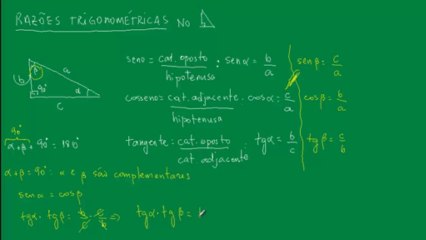 RAZÕES TRIGONOMÉTRICAS NO
b a β 90° α c
seno = cat. oposto / hipotenusa : sen α = b/a sen β = c/a
cosseno = cat. adjacente / hipotenusa : cos α = c/a cos β = b/a
tangente: cat. oposto / cat adjacente : tg α = b/c tg β = c/b
90°
α+β+90° = 180°
α+β = 90° : α e β são complementares
sen α = cos β
tg α · tg β = b/c · c/b ⇒ tg α · tg β =